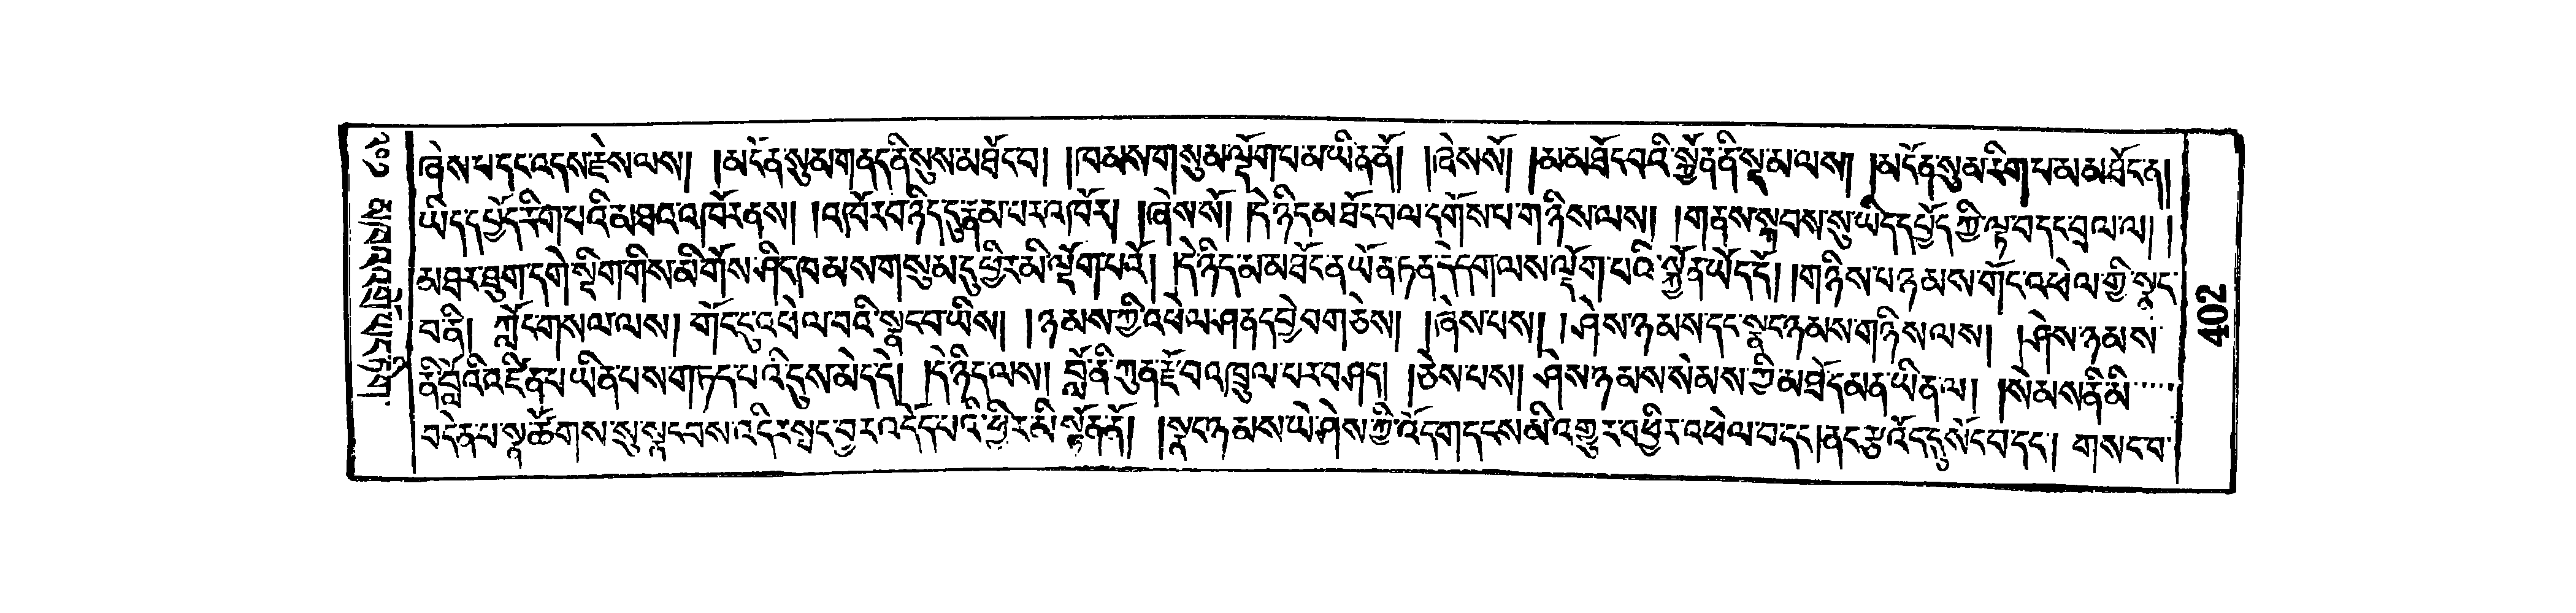 ཞེས་པ་དང་འདས་རྗེས་ལས། །མངོན་སུམ་གནད་ནི་སུས་མཐོང་བ། །ཁམས་གསུམ་ལྡོག་པ་མ་ཡིན་ནོ། །ཞེས་སོ། །མ་མཐོང་བའི་སྐྱོན་ནི་སྡམ་ལས། །མངོན་སུམ་རིག་པ་མ་མཐོང་ན།
ཡིད་དཔྱོད་རིག་པའི་མཐའ་འཁོར་ནས། །འཁོར་བ་ཉིད་དུ་རྣམ་པར་འཁོར། །ཞེས་སོ། །དེ་ཉིད་མཐོང་བལ་དགོས་པ་གཉིས་ལས། །གནས་སྐབས་སུ་ཡིད་དཔྱོད་ཀྱི་ལྟ་བ་དང་བྲལ་ལ། །
མཐར་ཐུག་དགེ་སྡིག་གིས་མི་གོས་ཤིད་ཁམས་གསུམ་དུ་ཕྱིར་མི་ལྡོག་པའོ། །དེ་ཉིད་མ་མཐོང་ན་ཡོན་ཏན་དེ་དག་ལས་ལྡོག་པའི་སྐྱོན་ཡོད་དོ། །གཉིས་པ་ཉམས་གོང་འཕེལ་གྱི་སྣང་
བ་ནི། ཀློང་གསལ་ལས། གོང་དུ་འཕེལ་བའི་སྣང་བ་ཡིས། །ཉམས་ཀྱི་འཕེལ་ཤན་དབྱེ་བ་གཅེས། །ཞེས་པས། །ཤེས་ཉམས་དང་སྣང་ཉམས་གཉིས་ལས། །ཤེས་ཉམས་
ནི་བློའི་འཛིན་པ་ཡིན་པས་གཏད་པའི་དུས་མེད་དེ། །དེ་ཉིད་ལས། བློ་ནི་ཀུན་རྫོབ་འཁྲུལ་པར་བཤད། །ཅེས་པས། ཤེས་ཉམས་སེམས་ཀྱི་མཐོད་མན་ཡིན་ལ། །སེམས་ནི་མི་
བདེན་པ་སྣ་ཚོགས་སུ་སྣང་བས་འདིར་སྤང་བྱར་འདོད་པའི་ཕྱིར་མི་སྟོན་ནོ། །སྣང་ཉམས་ཡེ་ཤེས་ཀྱི་འོད་གདངས་མི་འགྱུར་བ་ཕྱིར་འཕེལ་བ་དང་།ནང་རྩ་འོད་དུ་སོང་བ་དང་། གསང་བ་